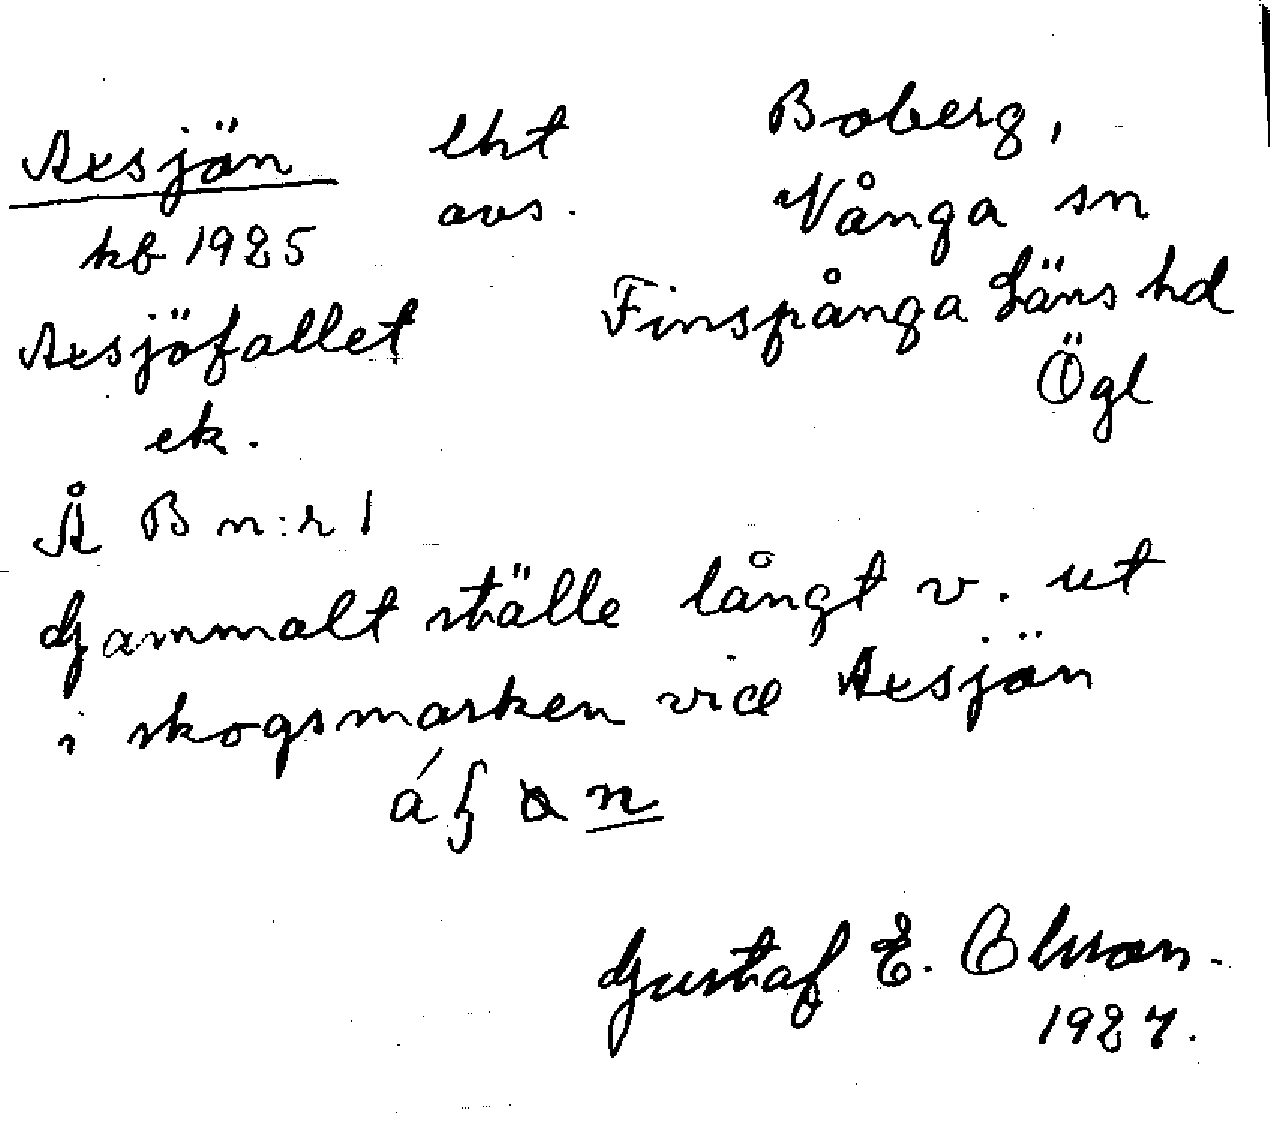 Axsjön lht Boberg,
avs. Vånga sn
kb 1925
Axsjöfallet Finspånga Läns hd
Ögl
ek.
Å B n:r 1
Gammalt ställe långt v. ut
i skogsmarken vid Axsjön
n
Gustaf E. Olsson.
1927.